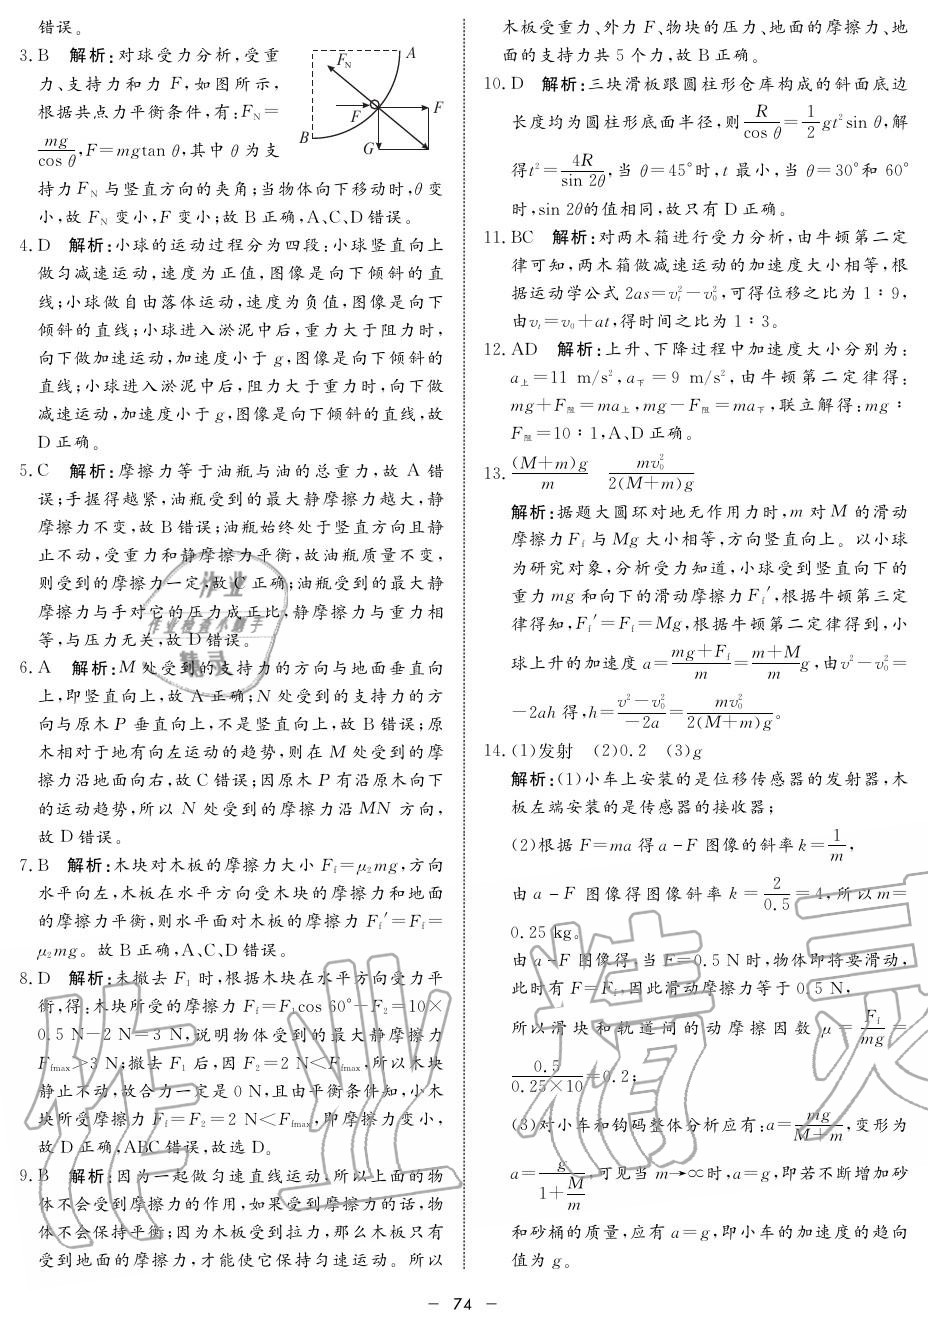 错误。
3. B　解析:对球受力分析,受重
力、支持力和力 F,如图所示,
根据共点力平衡条件,有:F_N=
mg/cos θ,F=mgtan θ,其中 θ 为支
A
F_N
F
F
B
G
持力 F_N 与竖直方向的夹角;当物体向下移动时,θ 变
小,故 F_N 变小,F 变小;故 B 正确,A、C、D 错误。
4. D　解析:小球的运动过程分为四段:小球竖直向上
做匀减速运动,速度为正值,图像是向下倾斜的直
线;小球做自由落体运动,速度为负值,图像是向下
倾斜的直线;小球进入淤泥中后,重力大于阻力时,
向下做加速运动,加速度小于 g,图像是向下倾斜的
直线;小球进入淤泥中后,阻力大于重力时,向下做
减速运动,加速度小于 g,图像是向下倾斜的直线,故
D 正确。
5. C　解析:摩擦力等于油瓶与油的总重力,故 A 错
误;手握得越紧,油瓶受到的最大静摩擦力越大,静
摩擦力不变,故 B 错误;油瓶始终处于竖直方向且静
止不动,受重力和静摩擦力平衡,故油瓶质量不变,
则受到的摩擦力一定,故 C 正确;油瓶受到的最大静
摩擦力与手对它的压力成正比,静摩擦力与重力相
等,与压力无关,故 D 错误。
6. A　解析:M 处受到的支持力的方向与地面垂直向
上,即竖直向上,故 A 正确;N 处受到的支持力的方
向与原木 P 垂直向上,不是竖直向上,故 B 错误;原
木相对于地有向左运动的趋势,则在 M 处受到的摩
擦力沿地面向右,故 C 错误;因原木 P 有沿原木向下
的运动趋势,所以 N 处受到的摩擦力沿 MN 方向,
故 D 错误。
7. B　解析:木块对木板的摩擦力大小 F_f=μ₂mg,方向
水平向左,木板在水平方向受木块的摩擦力和地面
的摩擦力平衡,则水平面对木板的摩擦力 F_f′=F_f=
μ₂mg。故 B 正确,A、C、D 错误。
8. D　解析:未撤去 F₁ 时,根据木块在水平方向受力平
衡,得:木块所受的摩擦力 F_f=F₁cos 60°−F₂=10×
0.5 N−2 N=3 N,说明物体受到的最大静摩擦力
F_fmax>3 N;撤去 F₁ 后,因 F₂=2 N<F_fmax,所以木块
静止不动,故合力一定是 0 N,且由平衡条件知,小木
块所受摩擦力 F_f=F₂=2 N<F_fmax,即摩擦力变小,
故 D 正确,ABC 错误,故选 D。
9. B　解析:因为一起做匀速直线运动,所以上面的物
体不会受到摩擦力的作用,如果受到摩擦力的话,物
体不会保持平衡;因为木板受到拉力,那么木板只有
受到地面的摩擦力,才能使它保持匀速运动。所以
木板受重力、外力 F、物块的压力、地面的摩擦力、地
面的支持力共 5 个力,故 B 正确。
10. D　解析:三块滑板跟圆柱形仓库构成的斜面底边
长度均为圆柱形底面半径,则 R/cos θ=1/2 gt²sin θ,解
得t²=4R/sin 2θ,当 θ=45°时,t 最小,当 θ=30°和 60°
时,sin 2θ的值相同,故只有 D 正确。
11. BC　解析:对两木箱进行受力分析,由牛顿第二定
律可知,两木箱做减速运动的加速度大小相等,根
据运动学公式 2as=v_t²−v₀²,可得位移之比为 1∶9,
由v_t=v₀+at,得时间之比为 1∶3。
12. AD　解析:上升、下降过程中加速度大小分别为:
a_上=11 m/s²,a_下=9 m/s²,由牛顿第二定律得:
mg+F_阻=ma_上,mg−F_阻=ma_下,联立解得:mg∶
F_阻=10∶1,A、D 正确。
13. (M+m)g/m　mv₀²/2(M+m)g
解析:据题大圆环对地无作用力时,m 对 M 的滑动
摩擦力 F_f 与 Mg 大小相等,方向竖直向上。以小球
为研究对象,分析受力知道,小球受到竖直向下的
重力 mg 和向下的滑动摩擦力 F_f′,根据牛顿第三定
律得知,F_f′=F_f=Mg,根据牛顿第二定律得到,小
球上升的加速度 a=(mg+F_f)/m=(m+M)/m g,由v²−v₀²=
−2ah 得,h=(v²−v₀²)/−2a=mv₀²/2(M+m)g。
14. (1)发射　(2)0.2　(3)g
解析:(1)小车上安装的是位移传感器的发射器,木
板左端安装的是传感器的接收器;
(2)根据 F=ma 得 a-F 图像的斜率 k=1/m,
由 a-F 图像得图像斜率 k=2/0.5=4,所以 m=
0.25 kg。
由 a-F 图像得,当 F=0.5 N 时,物体即将要滑动,
此时有 F=F_f,因此滑动摩擦力等于 0.5 N,
所以滑块和轨道间的动摩擦因数 μ=F_f/mg=
0.5/0.25×10=0.2;
(3)对小车和钩码整体分析应有:a=mg/(M+m),变形为
a=g/(1+M/m),可见当 m→∞时,a=g,即若不断增加砂
和砂桶的质量,应有 a=g,即小车的加速度的趋向
值为 g。
− 74 −
作业
作业检查小帮手
精灵
作业精灵